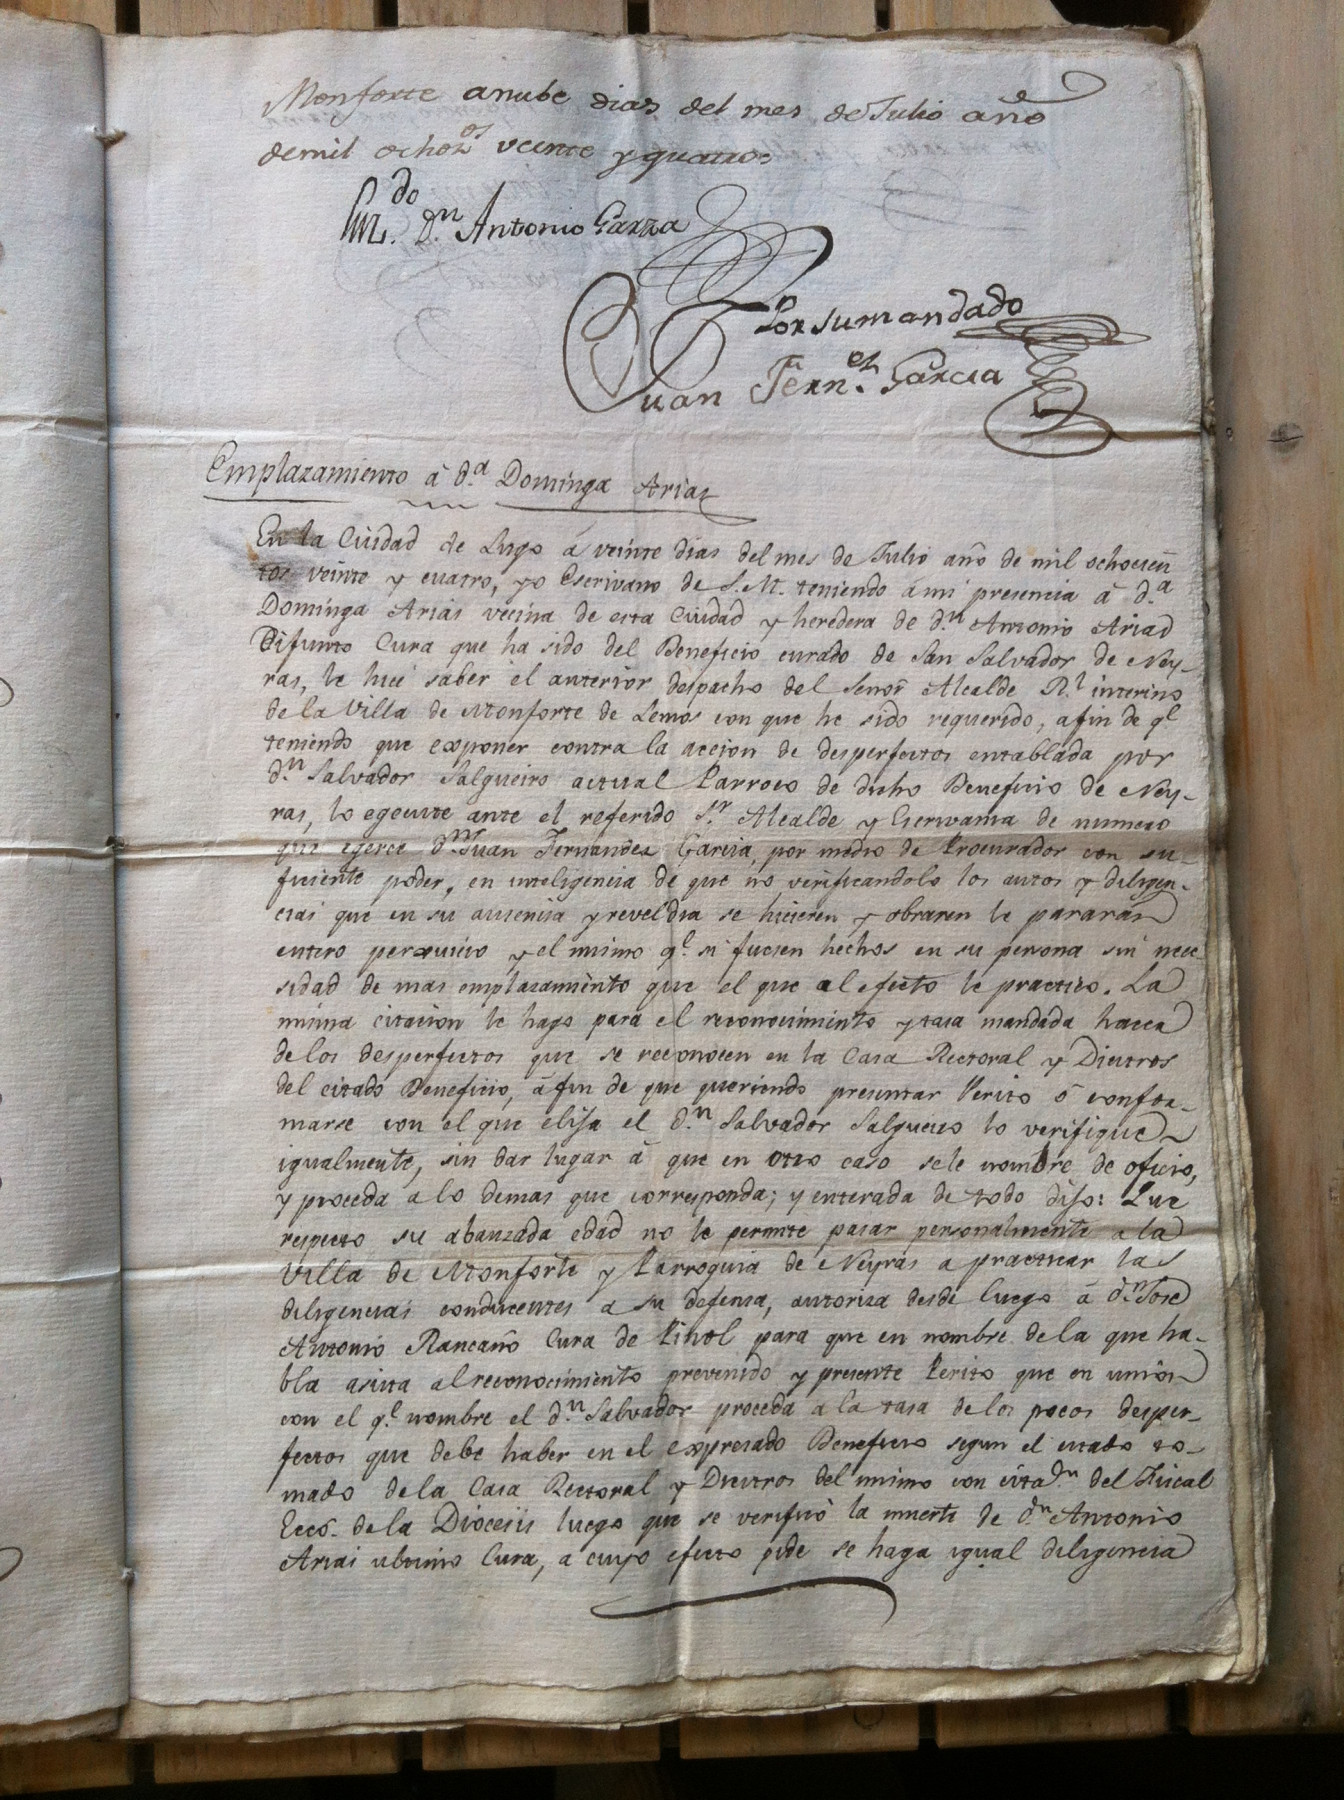 Monforte anube dias del mes de Julio año
demil ochoz.os veinte y quatro=
Liz.do D.n Antonio Garza
Por su mandado
Juan Fern.ez Garcia
Emplazamiento á d.a Dominga Arias
En la Ciudad de Lugo á veinte dias del mes de Julio año de mil ochocien
tos veinte y cuatro, yo Escrivano de S. M. teniendo á mi presencia á d.a
Dominga Arias vecina de esta Ciudad y heredera de d.n Antonio Arias
Difunto Cura que ha sido del Beneficio curado de San Salvador de Ney-
ras, le hice saber el anterior despacho del Señor Alcalde R.l interino
de la Villa de Monforte de Lemos con que he sido requerido, afin de q.e
teniendo que exponer contra la accion de desperfectos entablada por
d.n Salvador Salgueiro actual Parroco de dicho Beneficio de Ney-
ras, lo egecute ante el referido S.r Alcalde y Escrivania de numero
que egerce d.n Juan Fernandez Garcia, por medio de Procurador con su-
ficiente poder, en inteligencia de que no verificandolo los autos y diligen-
cias que en su ausencia y reveldia se hicieren y obraren le pararán
entero perxuicio y el mismo q.e si fuesen hechos en su persona sin nece-
sidad de mas emplazamiento que el que al efecto le practico. La
misma citacion le hago para el reconocimiento y tasa mandada hacer
de los desperfectos que se reconocen en la Casa Rectoral y Diestros
del citado Beneficio, á fin de que queriendo presentar Perito ó confor-
marse con el que elija el d.n Salvador Salgueiro lo verifique
igualmente, sin dar lugar á que en otro caso sele nombre de oficio,
y proceda a lo demas que corresponda; y enterada de todo dijo: Que
respecto su abanzada edad no le permite pasar personalmente a la
Villa de Monforte y Parroquia de Neyras a practicar las
diligencias conducentes a su defensa, autoriza desde luego á d.n Jose
Antonio Rancaño Cura de Pinol para que en nombre de la que ha-
bla asista al reconocimiento prevenido y presente Perito que en union
con el q.e nombre el d.n Salvador proceda a la tasa de los pocos desper-
fectos que debe haber en el expresado Beneficio segun el estado to-
mado de la Casa Rectoral y Diestros del mismo con cita.on del Fiscal
Eccō. de la Diocesis luego que se verificó la muerte de d.n Antonio
Arias ultimo Cura, a cuyo efecto pide se haga igual diligencia